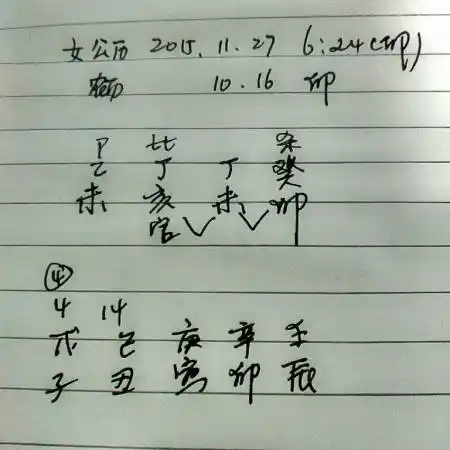 女 公历 2015.11.27 6:24(卯)
农历 10.16 卯
P 比 杀
乙 丁 丁 癸
未 亥 未 卯
官
④
4 14
戊 己 庚 辛 壬
子 丑 寅 卯 辰